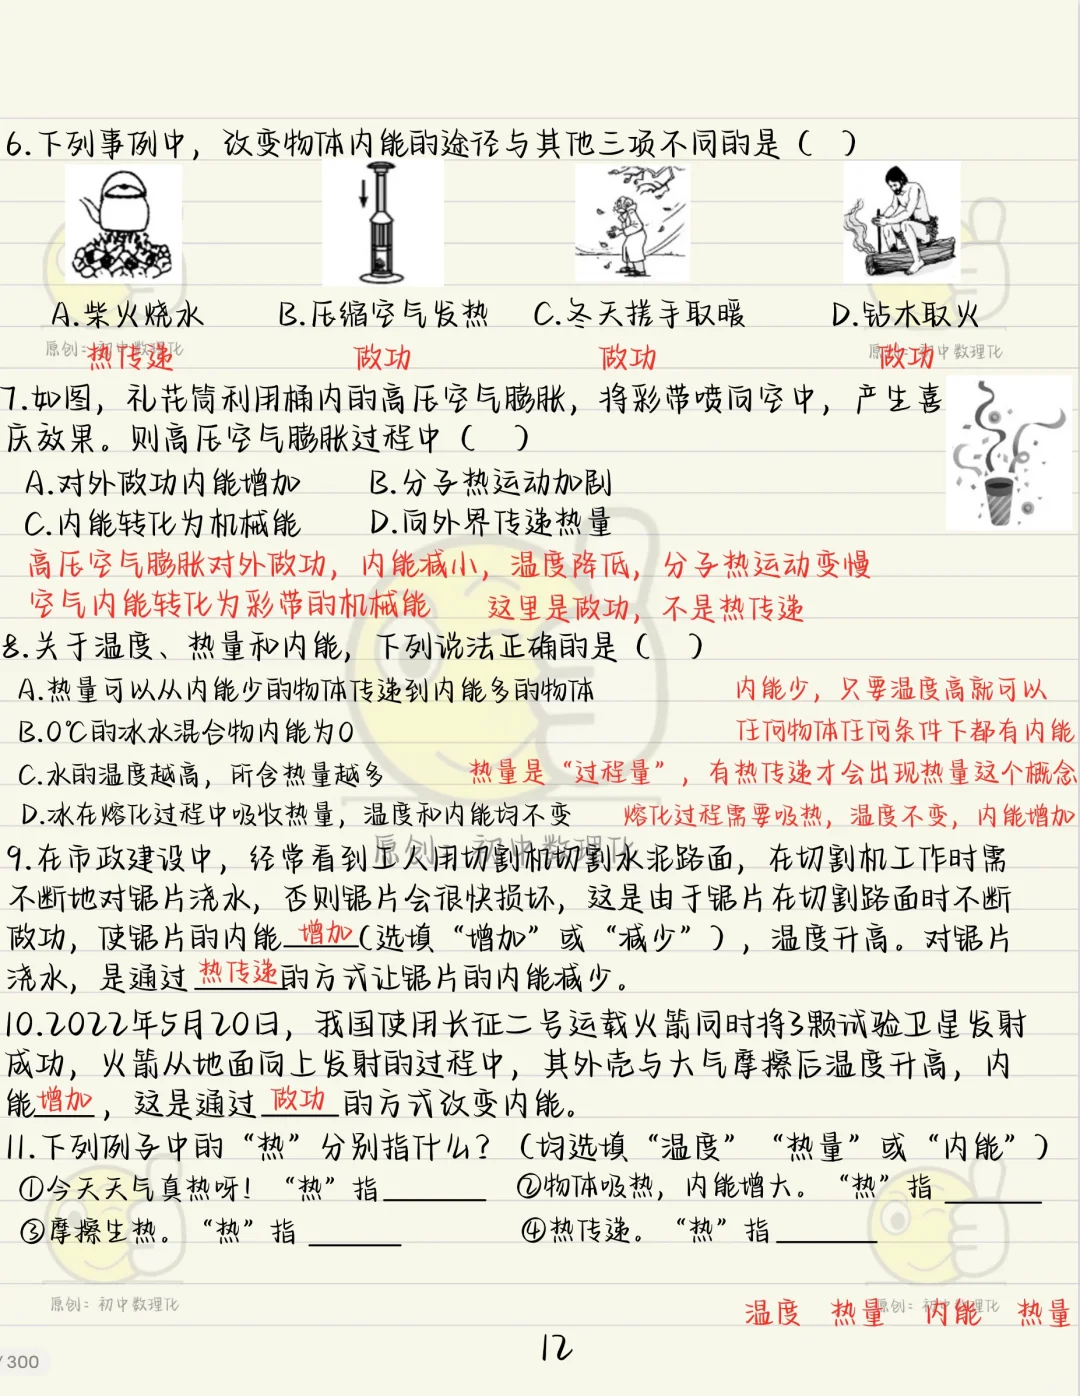 6.下列事例中，改变物体内能的途径与其他三项不同的是（ ）
A.柴火烧水 B.压缩空气发热 C.冬天搓手取暖 D.钻木取火
原创：初中数理化 原创：初中数理化
热传递 做功 做功 做功
7.如图，礼花筒利用桶内的高压空气膨胀，将彩带喷向空中，产生喜
庆效果。则高压空气膨胀过程中（ ）
A.对外做功内能增加 B.分子热运动加剧
C.内能转化为机械能 D.向外界传递热量
高压空气膨胀对外做功，内能减小，温度降低，分子热运动变慢
空气内能转化为彩带的机械能 这里是做功，不是热传递
8.关于温度、热量和内能，下列说法正确的是（ ）
A.热量可以从内能少的物体传递到内能多的物体 内能少，只要温度高就可以
B.0℃的冰水混合物内能为0 任何物体任何条件下都有内能
C.水的温度越高，所含热量越多 热量是“过程量”，有热传递才会出现热量这个概念
D.冰在熔化过程中吸收热量，温度和内能均不变 熔化过程需要吸热，温度不变，内能增加
原创：初中数理化
9.在市政建设中，经常看到工人用切割机切割水泥路面，在切割机工作时需
不断地对锯片浇水，否则锯片会很快损坏，这是由于锯片在切割路面时不断
做功，使锯片的内能 增加 (选填“增加”或“减少”），温度升高。对锯片
浇水，是通过 热传递 的方式让锯片的内能减少。
10.2022年5月20日，我国使用长征二号运载火箭同时将3颗试验卫星发射
成功，火箭从地面向上发射的过程中，其外壳与大气摩擦后温度升高，内
能 增加 ，这是通过 做功 的方式改变内能。
11.下列例子中的“热”分别指什么？（均选填“温度”“热量”或“内能”）
①今天天气真热呀！“热”指______ ②物体吸热，内能增大。“热”指______
③摩擦生热。“热”指______ ④热传递。“热”指______
原创：初中数理化 原创：初中数理化
温度 热量 内能 热量
12
/300